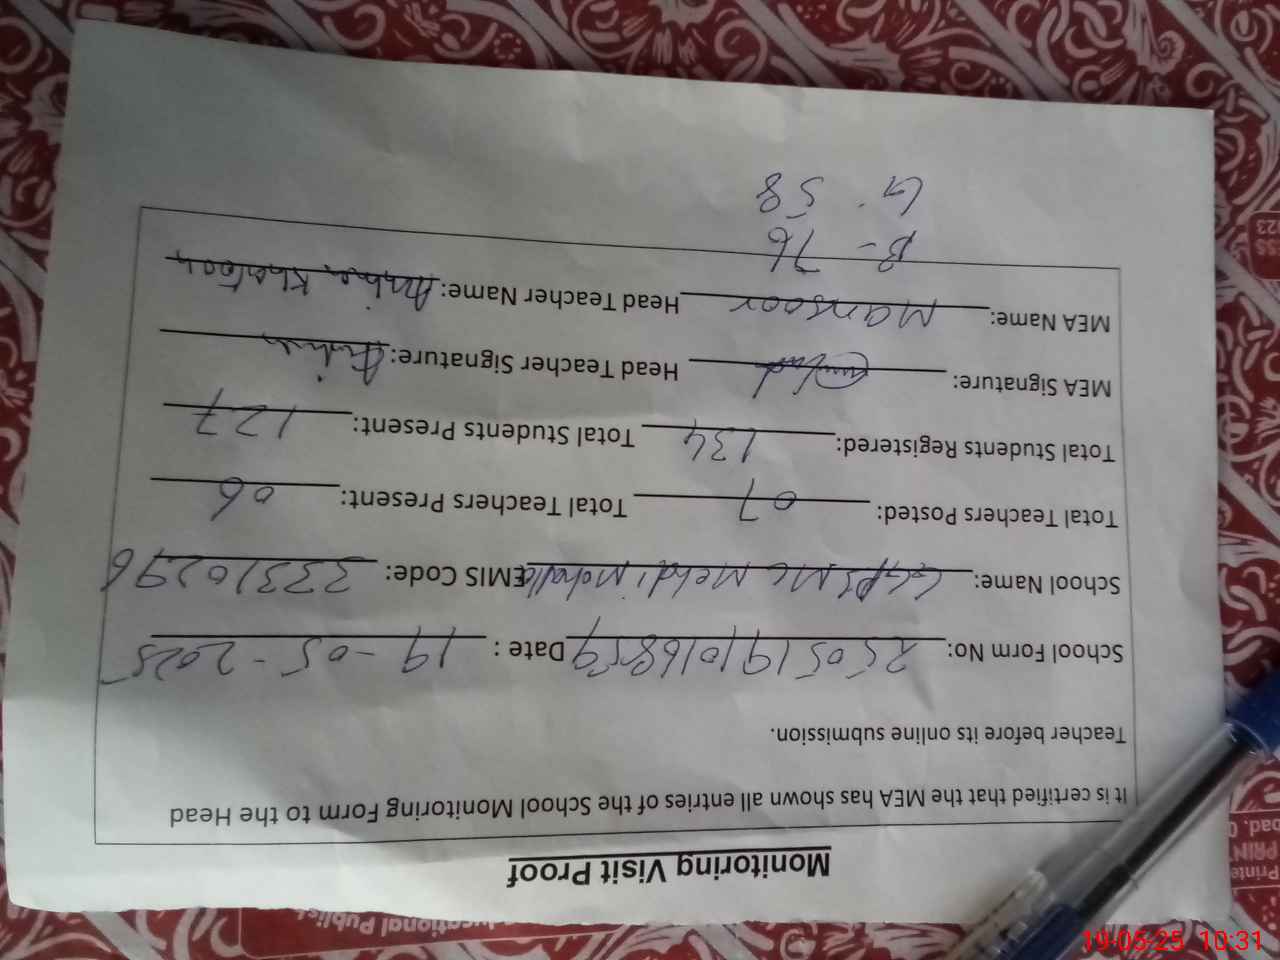 Monitoring Visit Proof
It is certified that the MEA has shown all entries of the School Monitoring Form to the Head
Teacher before its online submission.
School Form No: 25051910168559 Date : 19-05-2025
School Name: GGPS MC Mehdi Mohalla EMIS Code: 33310296
Total Teachers Posted: 07 Total Teachers Present: 06
Total Students Registered: 134 Total Students Present: 127
MEA Signature: Head Teacher Signature:
MEA Name: Mansoor Head Teacher Name: Khatoon
B- 76
G. 58
19-05-25 10:31